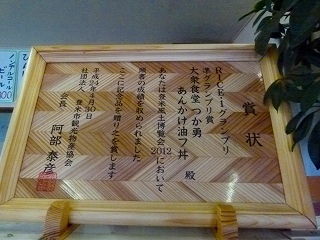 賞状
RICE-1グランプリ
準グランプリ賞
大衆食堂つか勇
あんかけ油フ丼 殿
あなたは登米風土博覧会2012において
頭書の成績を収められました
ここに記念品を贈り之を賞します
平成24年4月30日
社団法人 登米市観光物産協会
会長 阿部泰彦
ノンアルコール
ビール